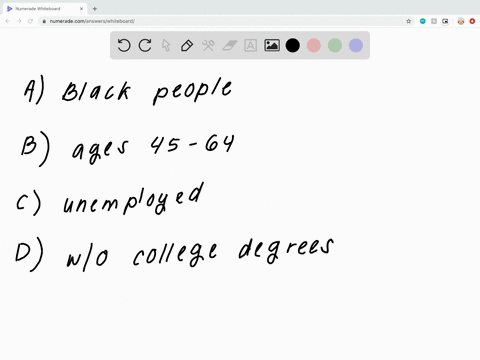 Numerade Whiteboard
numerade.com/answers/whiteboard/
A) Black people
B) ages 45-64
C) unemployed
D) w/o college degrees